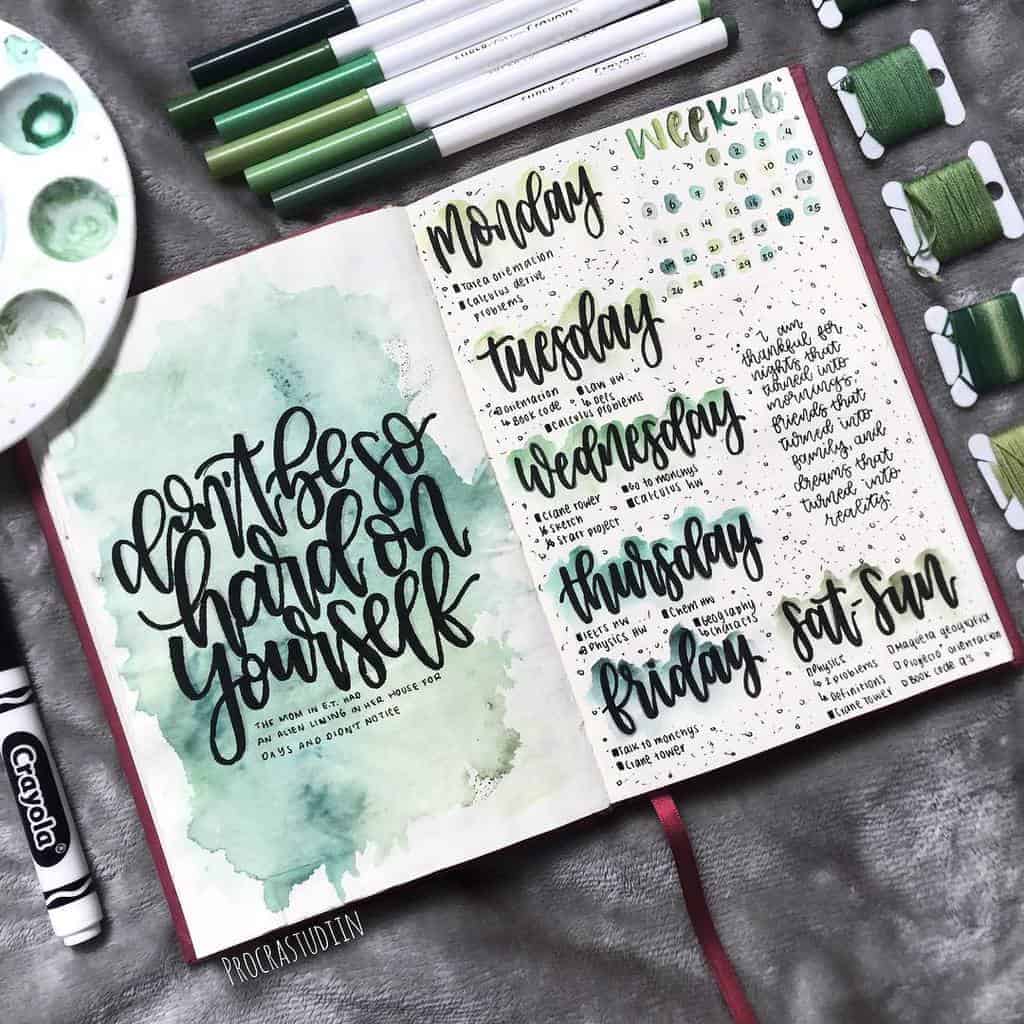 SUPERTIPS Crayola
don't be so
hard on
yourself
THE MOM IN E.T. HAD
AN ALIEN LIVING IN HER HOUSE FOR
DAYS AND DIDN'T NOTICE
WEEK 46
1 2 3 4
5 6 7 8 9 10 11
12 13 14 15 16 17 18
19 20 21 22 23 24 25
26 27 28 29 30
monday
Tarea orientation
Calculus derive
problems
tuesday
orientation
Book code
Law HW
Defs
Calculus problems
wednesday
Crane tower
sketch
start project
Go to monchys
Calculus HW
thursday
IELTS HW
Physics HW
Chem HW
Geography
characts
friday
Talk to monchys
Crane tower
"I am
thankful for
nights that
turned into
mornings,
friends that
turned into
family, and
dreams that
turned into
reality."
sat-sun
Physics
2 problems
Definitions
Crane tower
Maqueta geografica
Proyecto orientation
Book code q's
Crayola
PROCRASTUDIIN